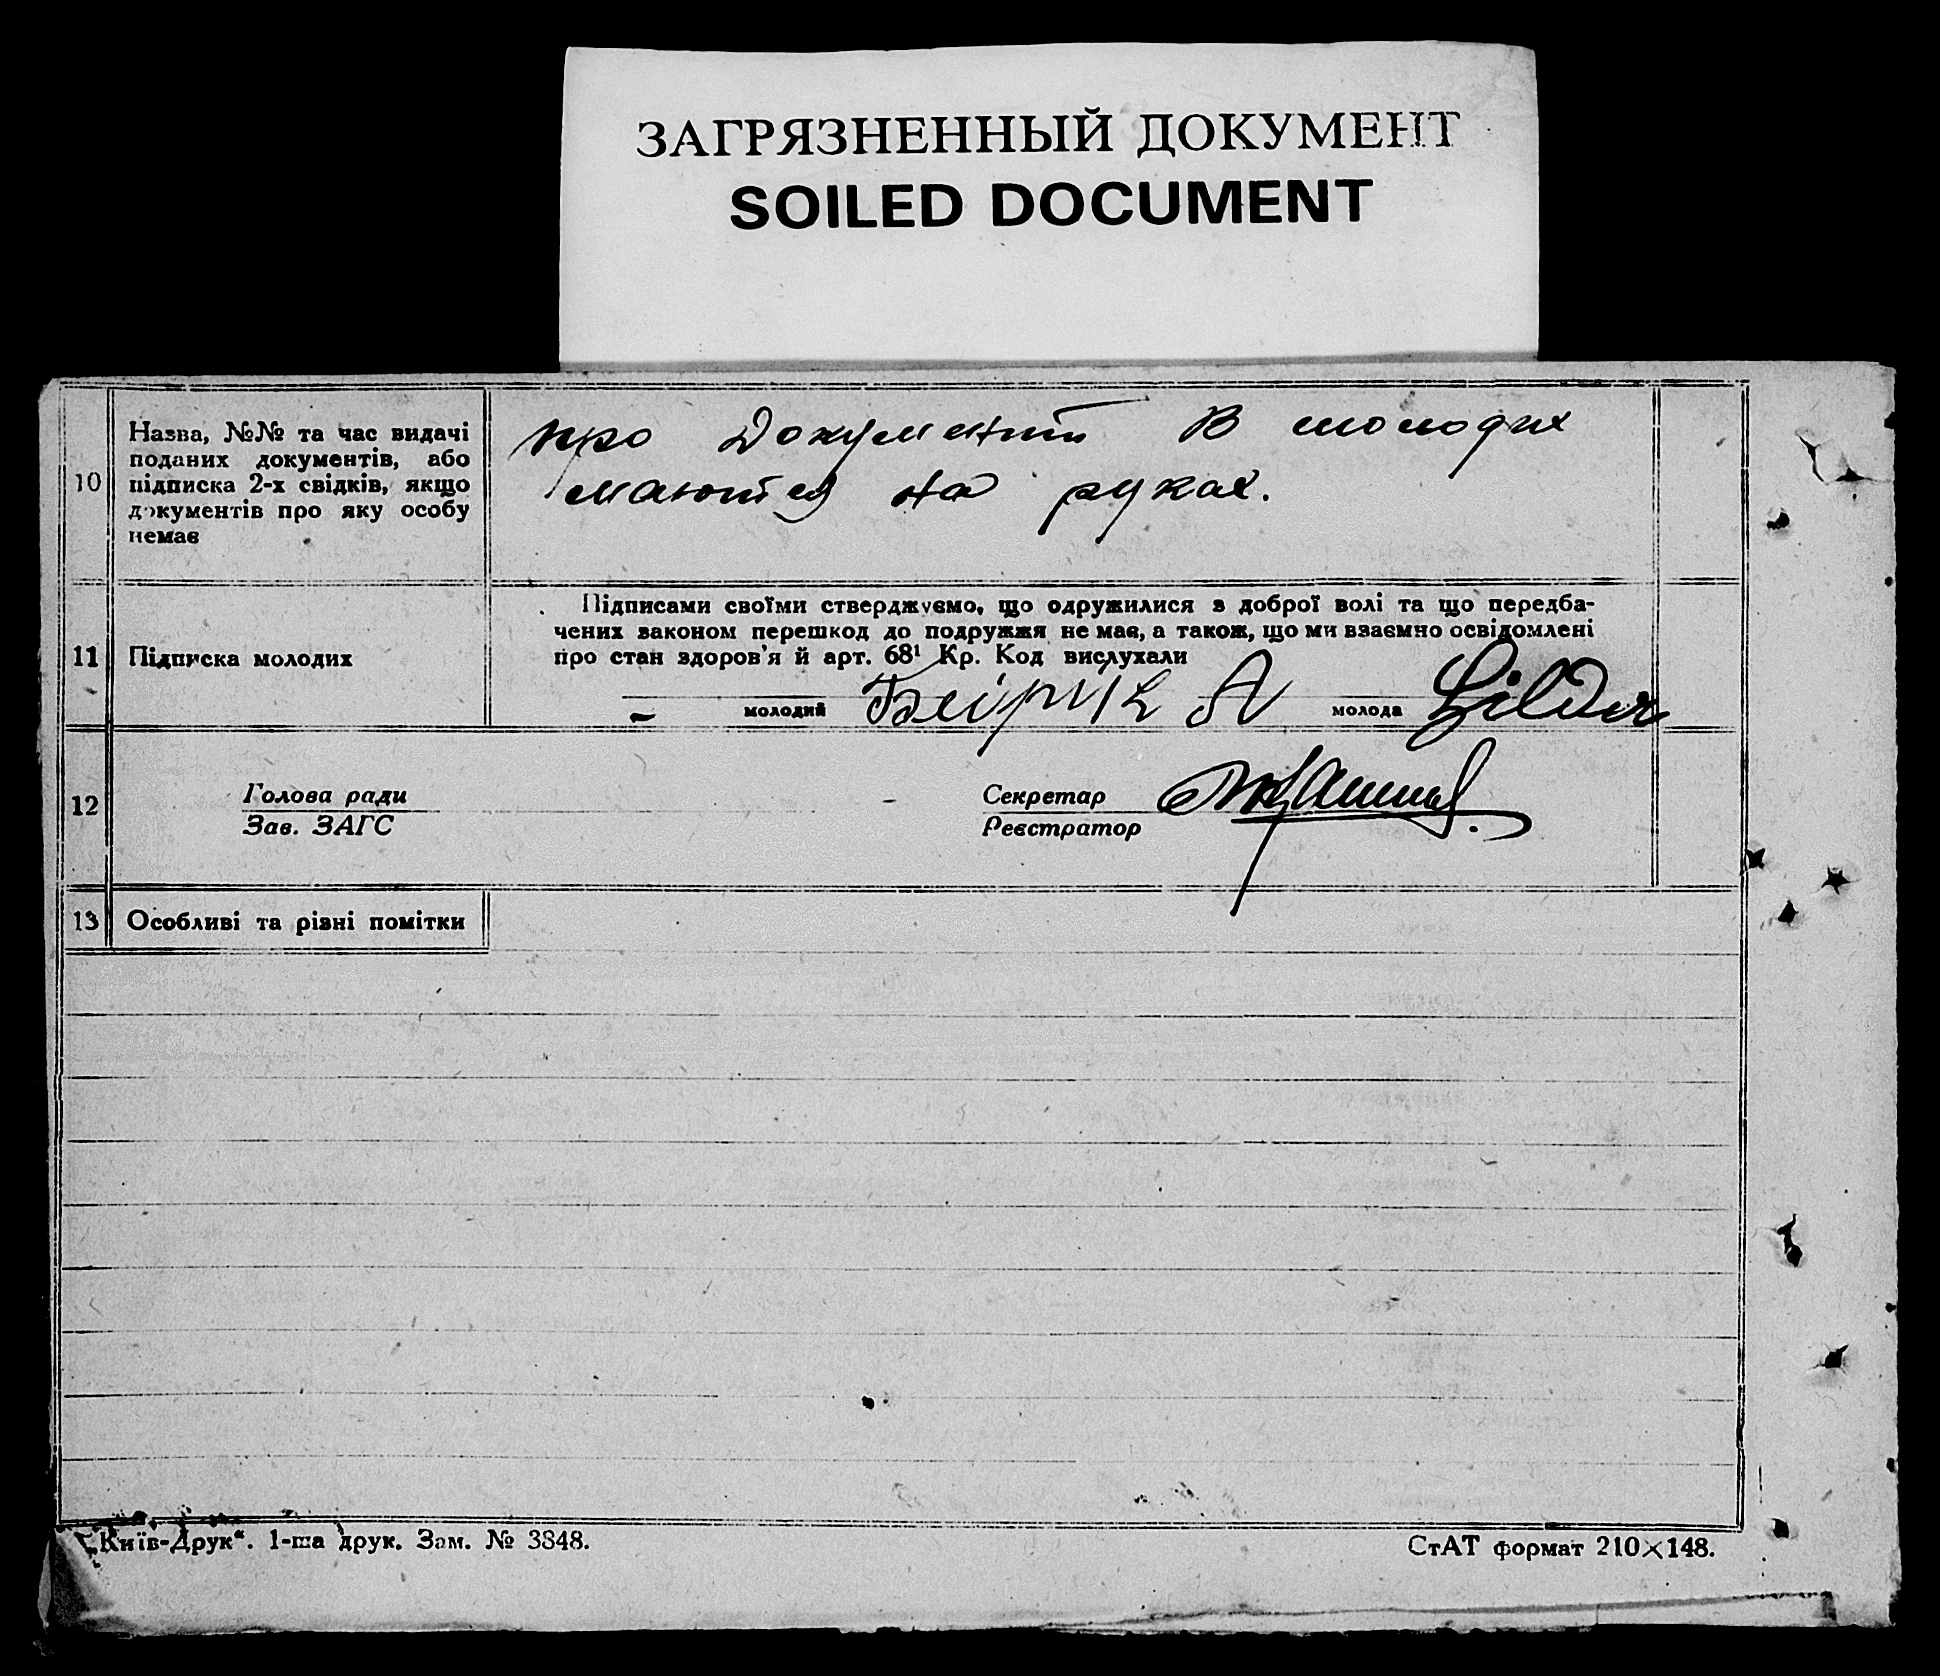 ЗАГРЯЗНЕННЫЙ ДОКУМЕНТ
SOILED DOCUMENT
10
Назва, №№ та час видачі
поданих документів, або
підписка 2-х свідків, якщо
документів про яку особу
немає
про документи в молодих
маються на руках.
11
Підписка молодих
Підписами своїми стверджуємо, що одружилися з доброї волі та що передба-
чених законом перешкод до подружжя немає, а також, що ми взаємно освідомлені
про стан здоров'я й арт. 68¹ Кр. Код вислухали
молодий
молода
12
Голова ради
Зав. ЗАГС
Секретар
Реєстратор
13
Особливі та різні помітки
„Київ-Друк“. 1-ша друк. Зам. № 3848.
СтАТ формат 210×148.